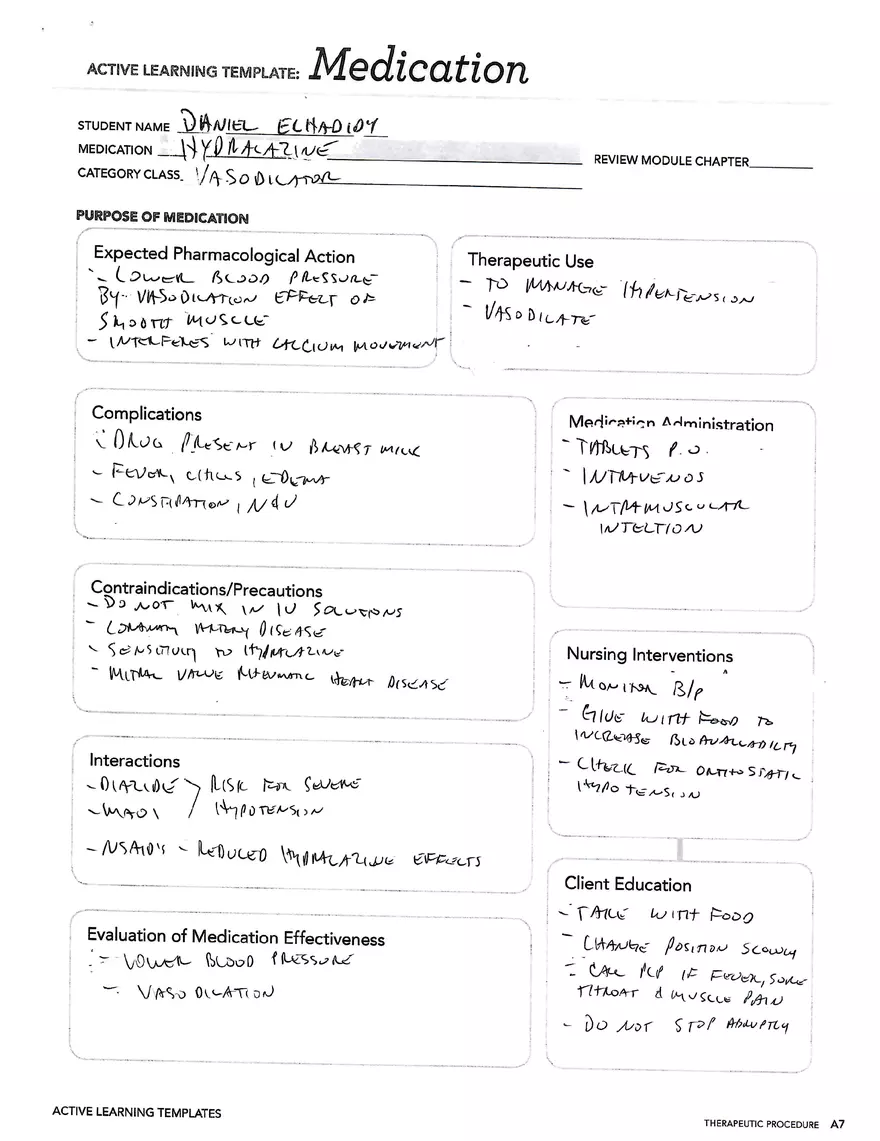 ACTIVE LEARNING TEMPLATE: Medication
STUDENT NAME DANIEL ELHADIDY
MEDICATION HYDRALAZINE
REVIEW MODULE CHAPTER
CATEGORY CLASS VASODILATOR
PURPOSE OF MEDICATION
Expected Pharmacological Action
- LOWER BLOOD PRESSURE
BY VASODILATION EFFECT OF
SMOOTH MUSCLE
- INTERFERES WITH CALCIUM MOVEMENT
Therapeutic Use
- TO MANAGE HYPERTENSION
- VASODILATE
Complications
- DRUG PRESENT IN BREAST MILK
- FEVER, CHILLS, EDEMA
- CONSTIPATION, N & V
Medication Administration
- TABLETS P.O.
- INTRAVENOS
- INTRAMUSCULAR
INTECTION
Contraindications/Precautions
- DO NOT MIX IN IV SOLUTIONS
- CORONARY ARTERY DISEASE
- SENSITIVITY TO HYDRALAZINE
- MITRAL VALVE RHEUMATIC HEART DISEASE
Nursing Interventions
- MONITOR B/P
- GIVE WITH FOOD TO
INCREASE BIOAVAILABILTY
- CHECK FOR ORTHOSTATIC
HYPOTENSION
Interactions
- DIAZIDE > RISK FOR SEVERE
- MAOI HYPOTENSION
- NSAID'S - REDUCED HYDRALAZINE EFFECTS
Client Education
- TAKE WITH FOOD
- CHANGE POSITION SLOWLY
- CALL PCP IF FEVER, SORE
THROAT & MUSCLE PAIN
- DO NOT STOP ABRUPTLY
Evaluation of Medication Effectiveness
- LOWER BLOOD PRESSURE
- VASODILATION
ACTIVE LEARNING TEMPLATES
THERAPEUTIC PROCEDURE A7